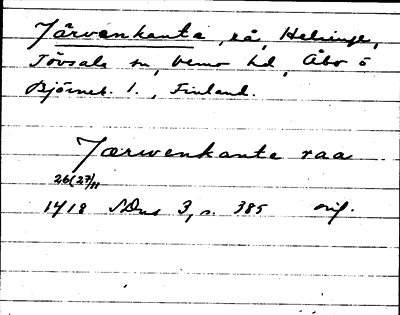 Järvenkanta, rå, Helsinge,
Tövsala sn, Vemo hd, Åbo ö
Björneb. l., Finland.
Jærwenkante raa
26(27)/11
1418 SDns 3, s. 385 orig.